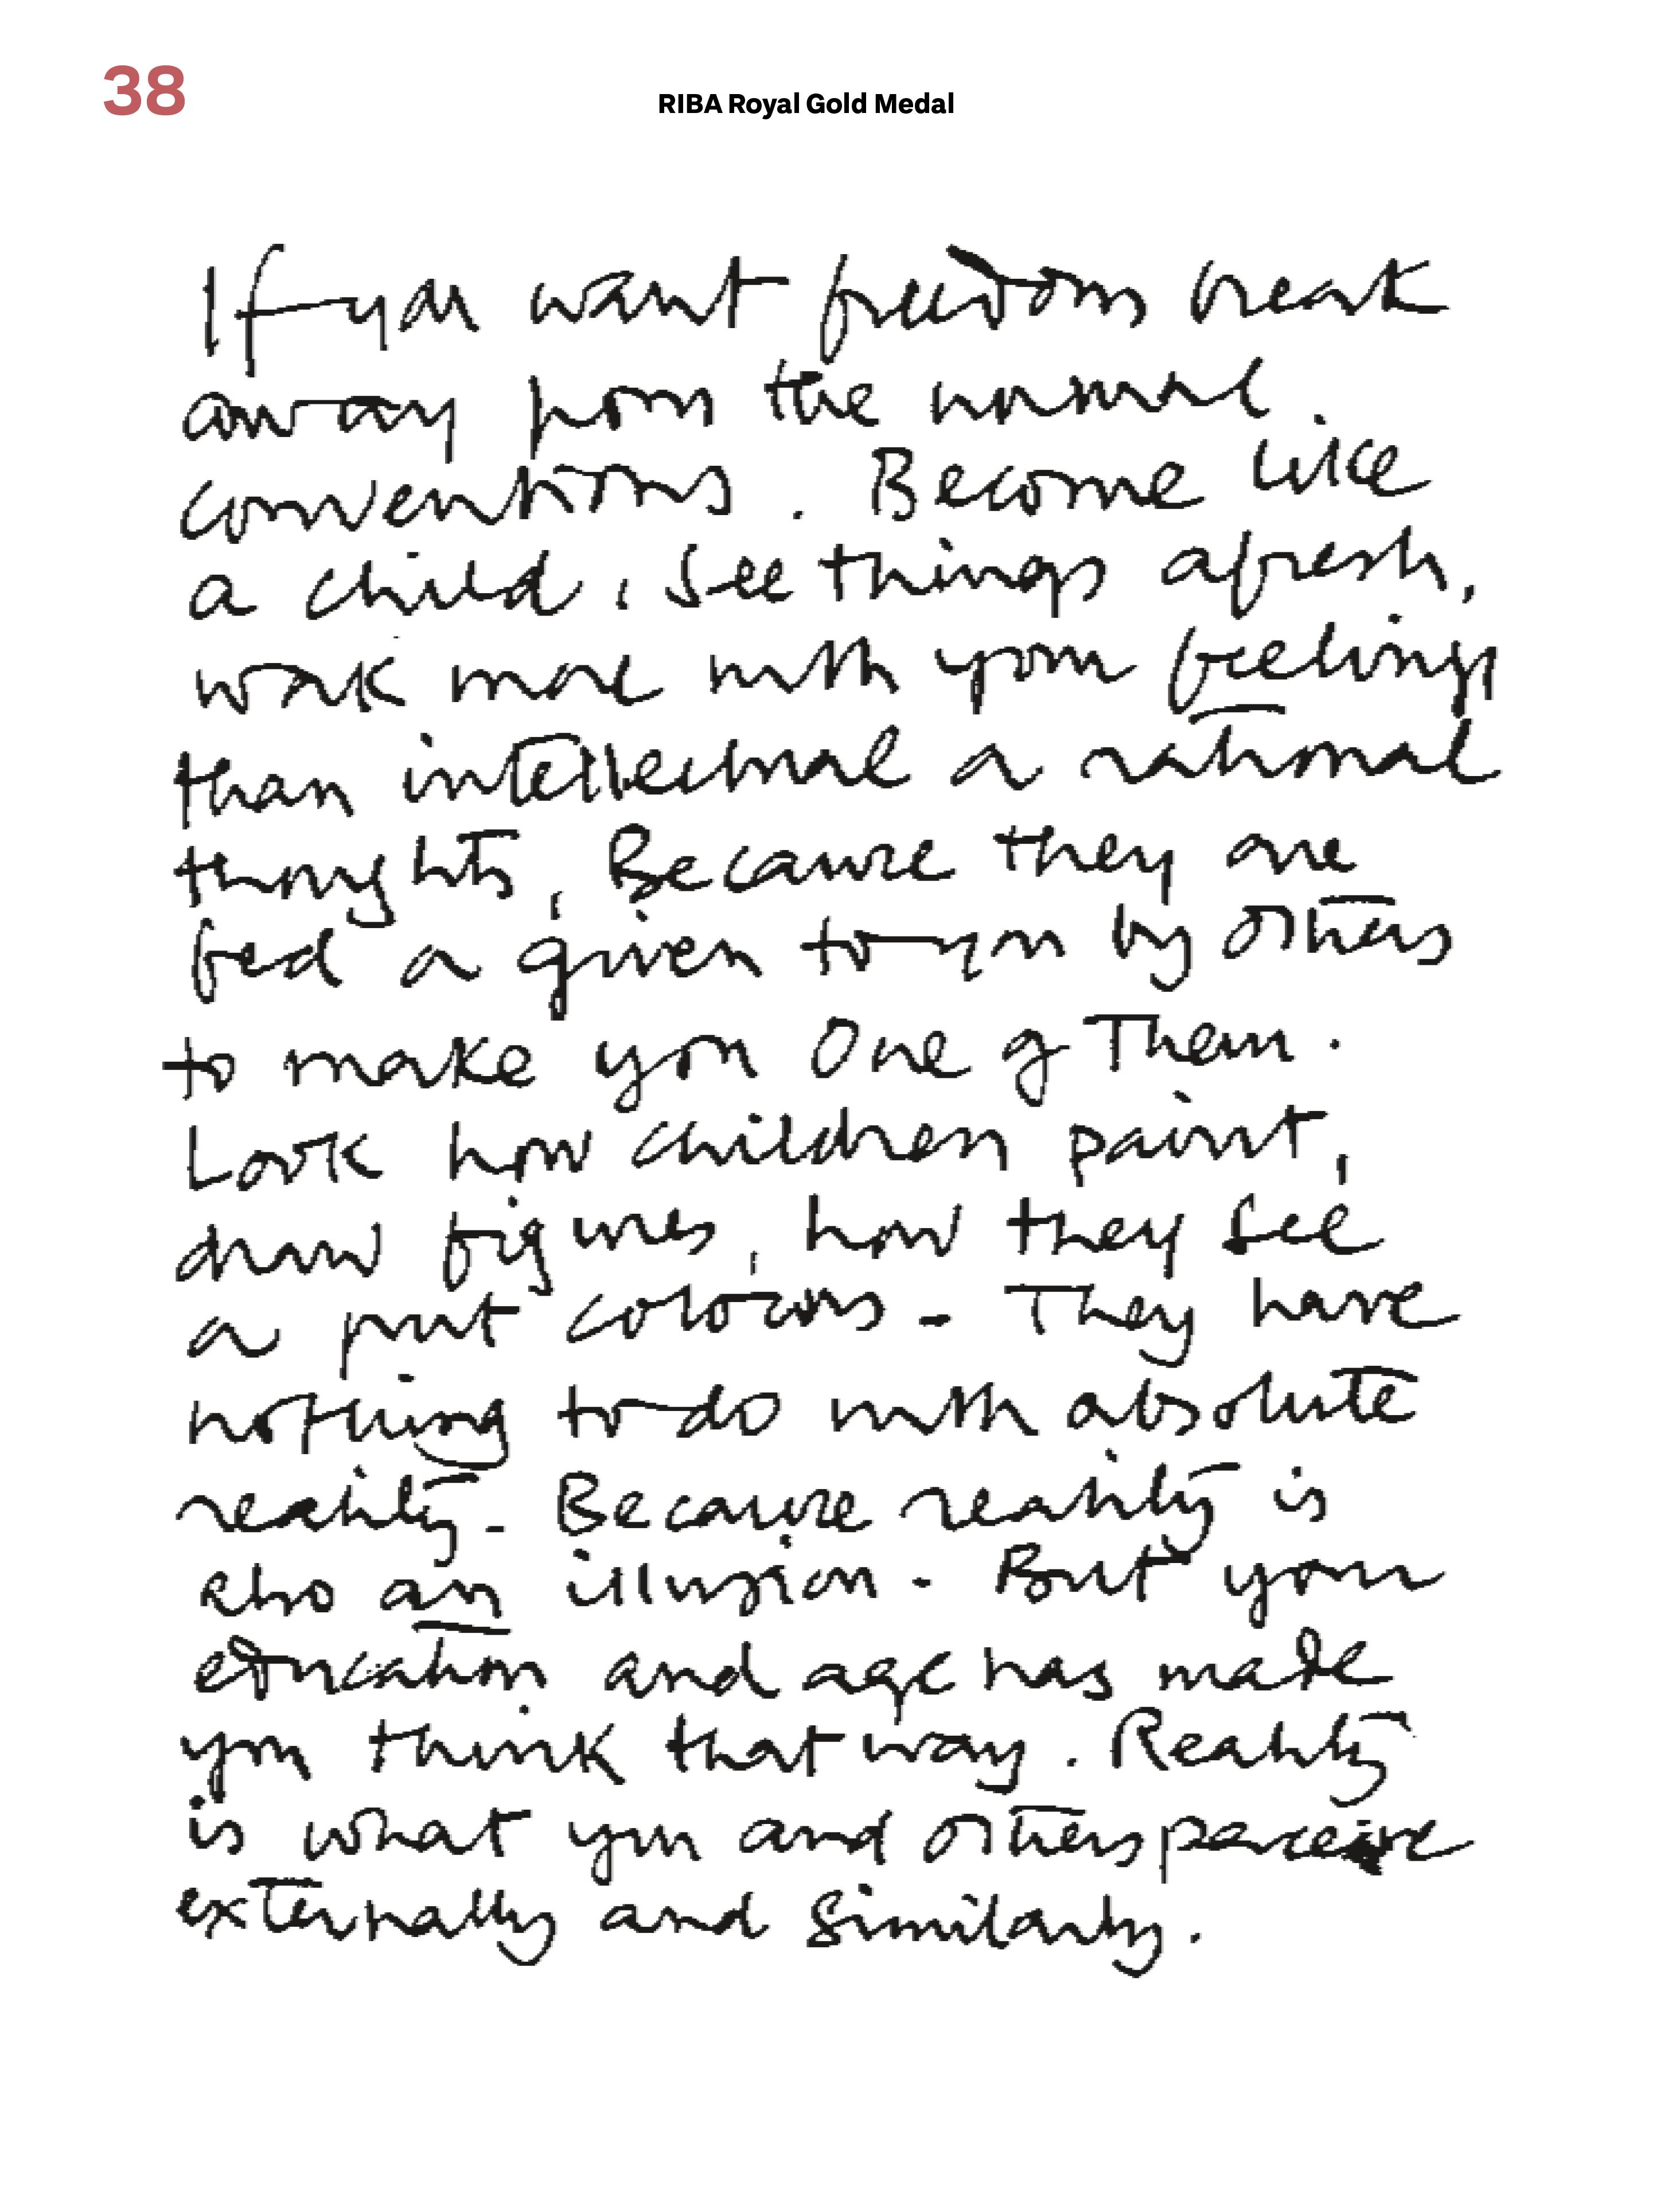 38
RIBA Royal Gold Medal
If you want freedom break
away from the normal
conventions. Become like
a child, see things afresh,
work more with your feelings
than intellectual or rational
thoughts, Because they are
fed or given to you by others
to make you One of Them.
Look how children paint,
draw figures, how they see
or put colours - They have
nothing to do with absolute
reality - Because reality is
also an illusion - But your
education and age has made
you think that way. Reality
is what you and others perceive
externally and similarly.